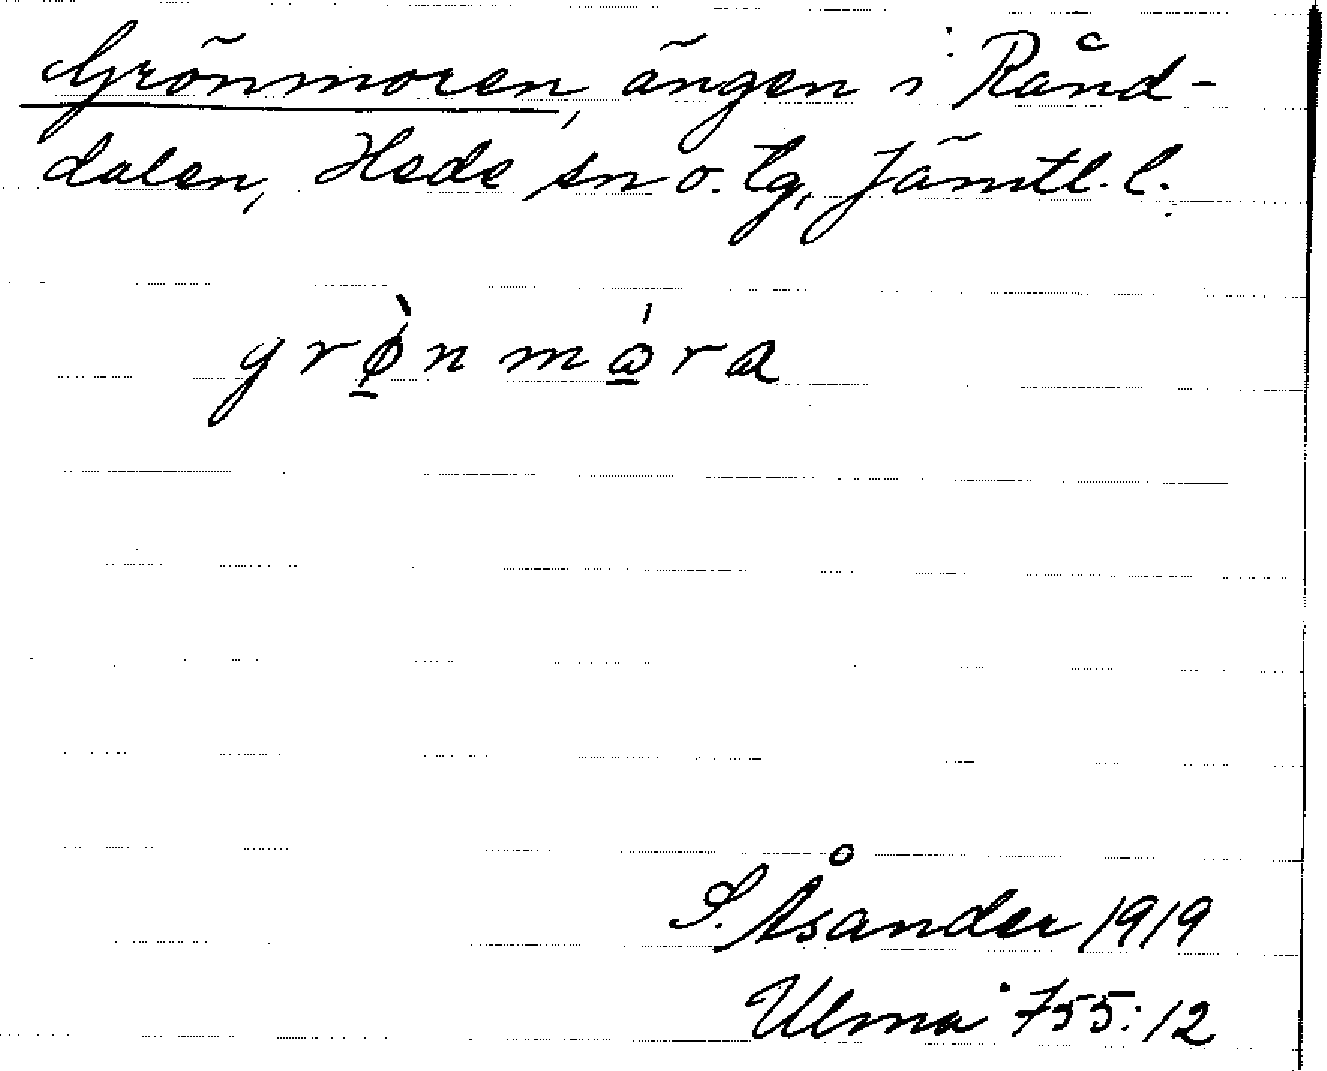 Grönmoren, ängen i Rånd-
dalen, Hede sn o. tg, Jämtl. l.
grø̀nmåra
S. Åsander 1919
Ulma 755:12